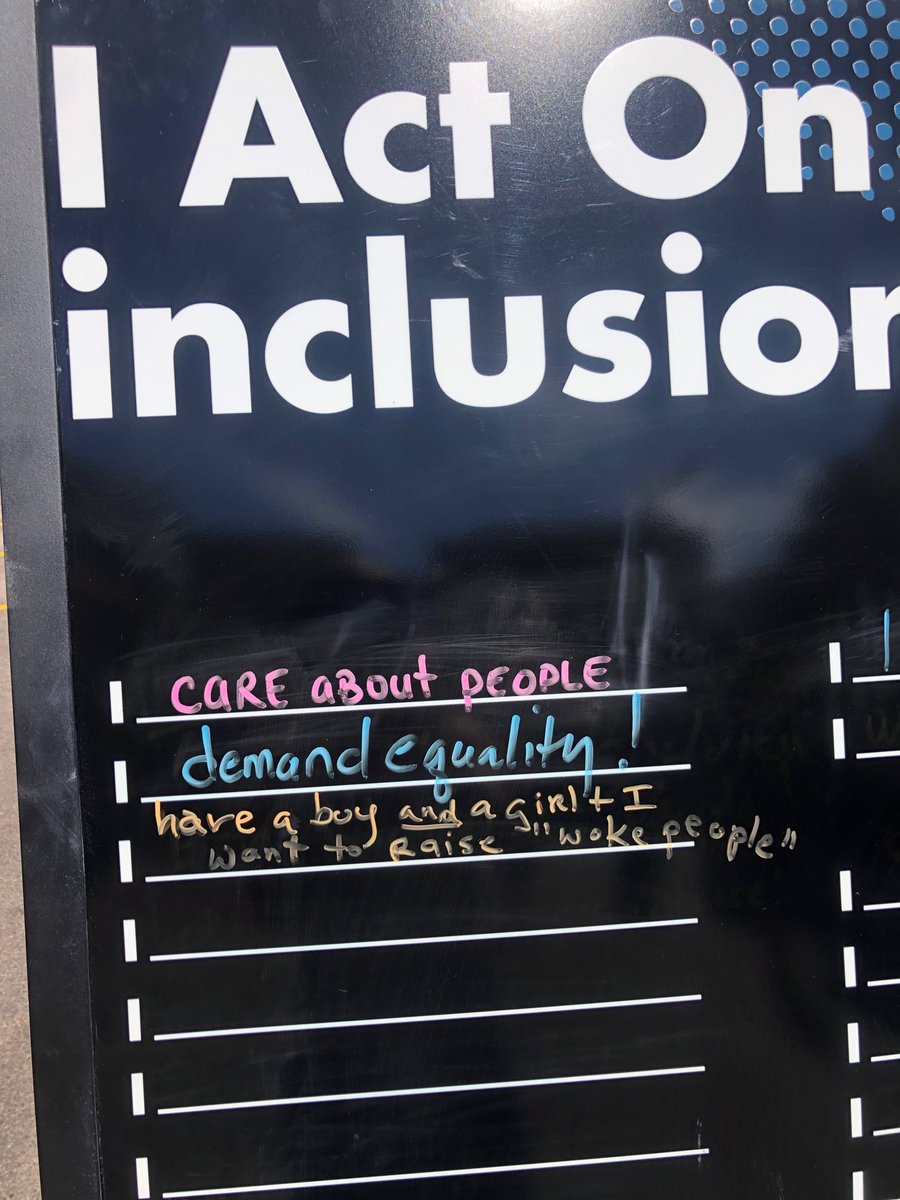 I Act On
inclusion
I CARE ABOUT PEOPLE
I demand equality!
I have a boy and a girl + I
want to raise "woke people"
I
I
I
I